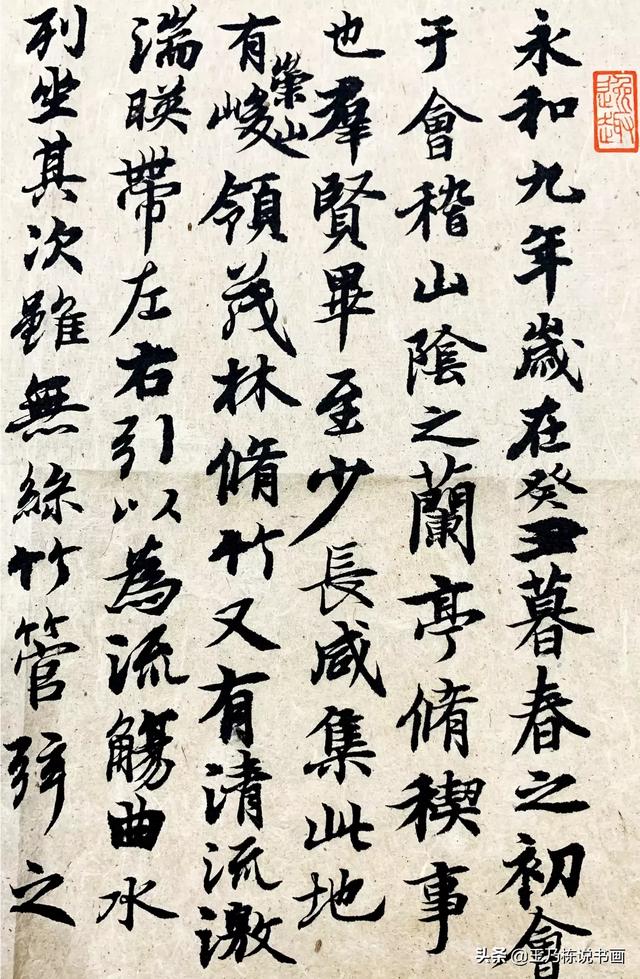 永和九年歲在癸丑暮春之初會
于會稽山陰之蘭亭脩稧事
也羣賢畢至少長咸集此地
有崇山峻領茂林脩竹又有清流激
湍暎帶左右引以為流觴曲水
列坐其次雖無絲竹管弦之
逸趣
头条 @王乃栋说书画